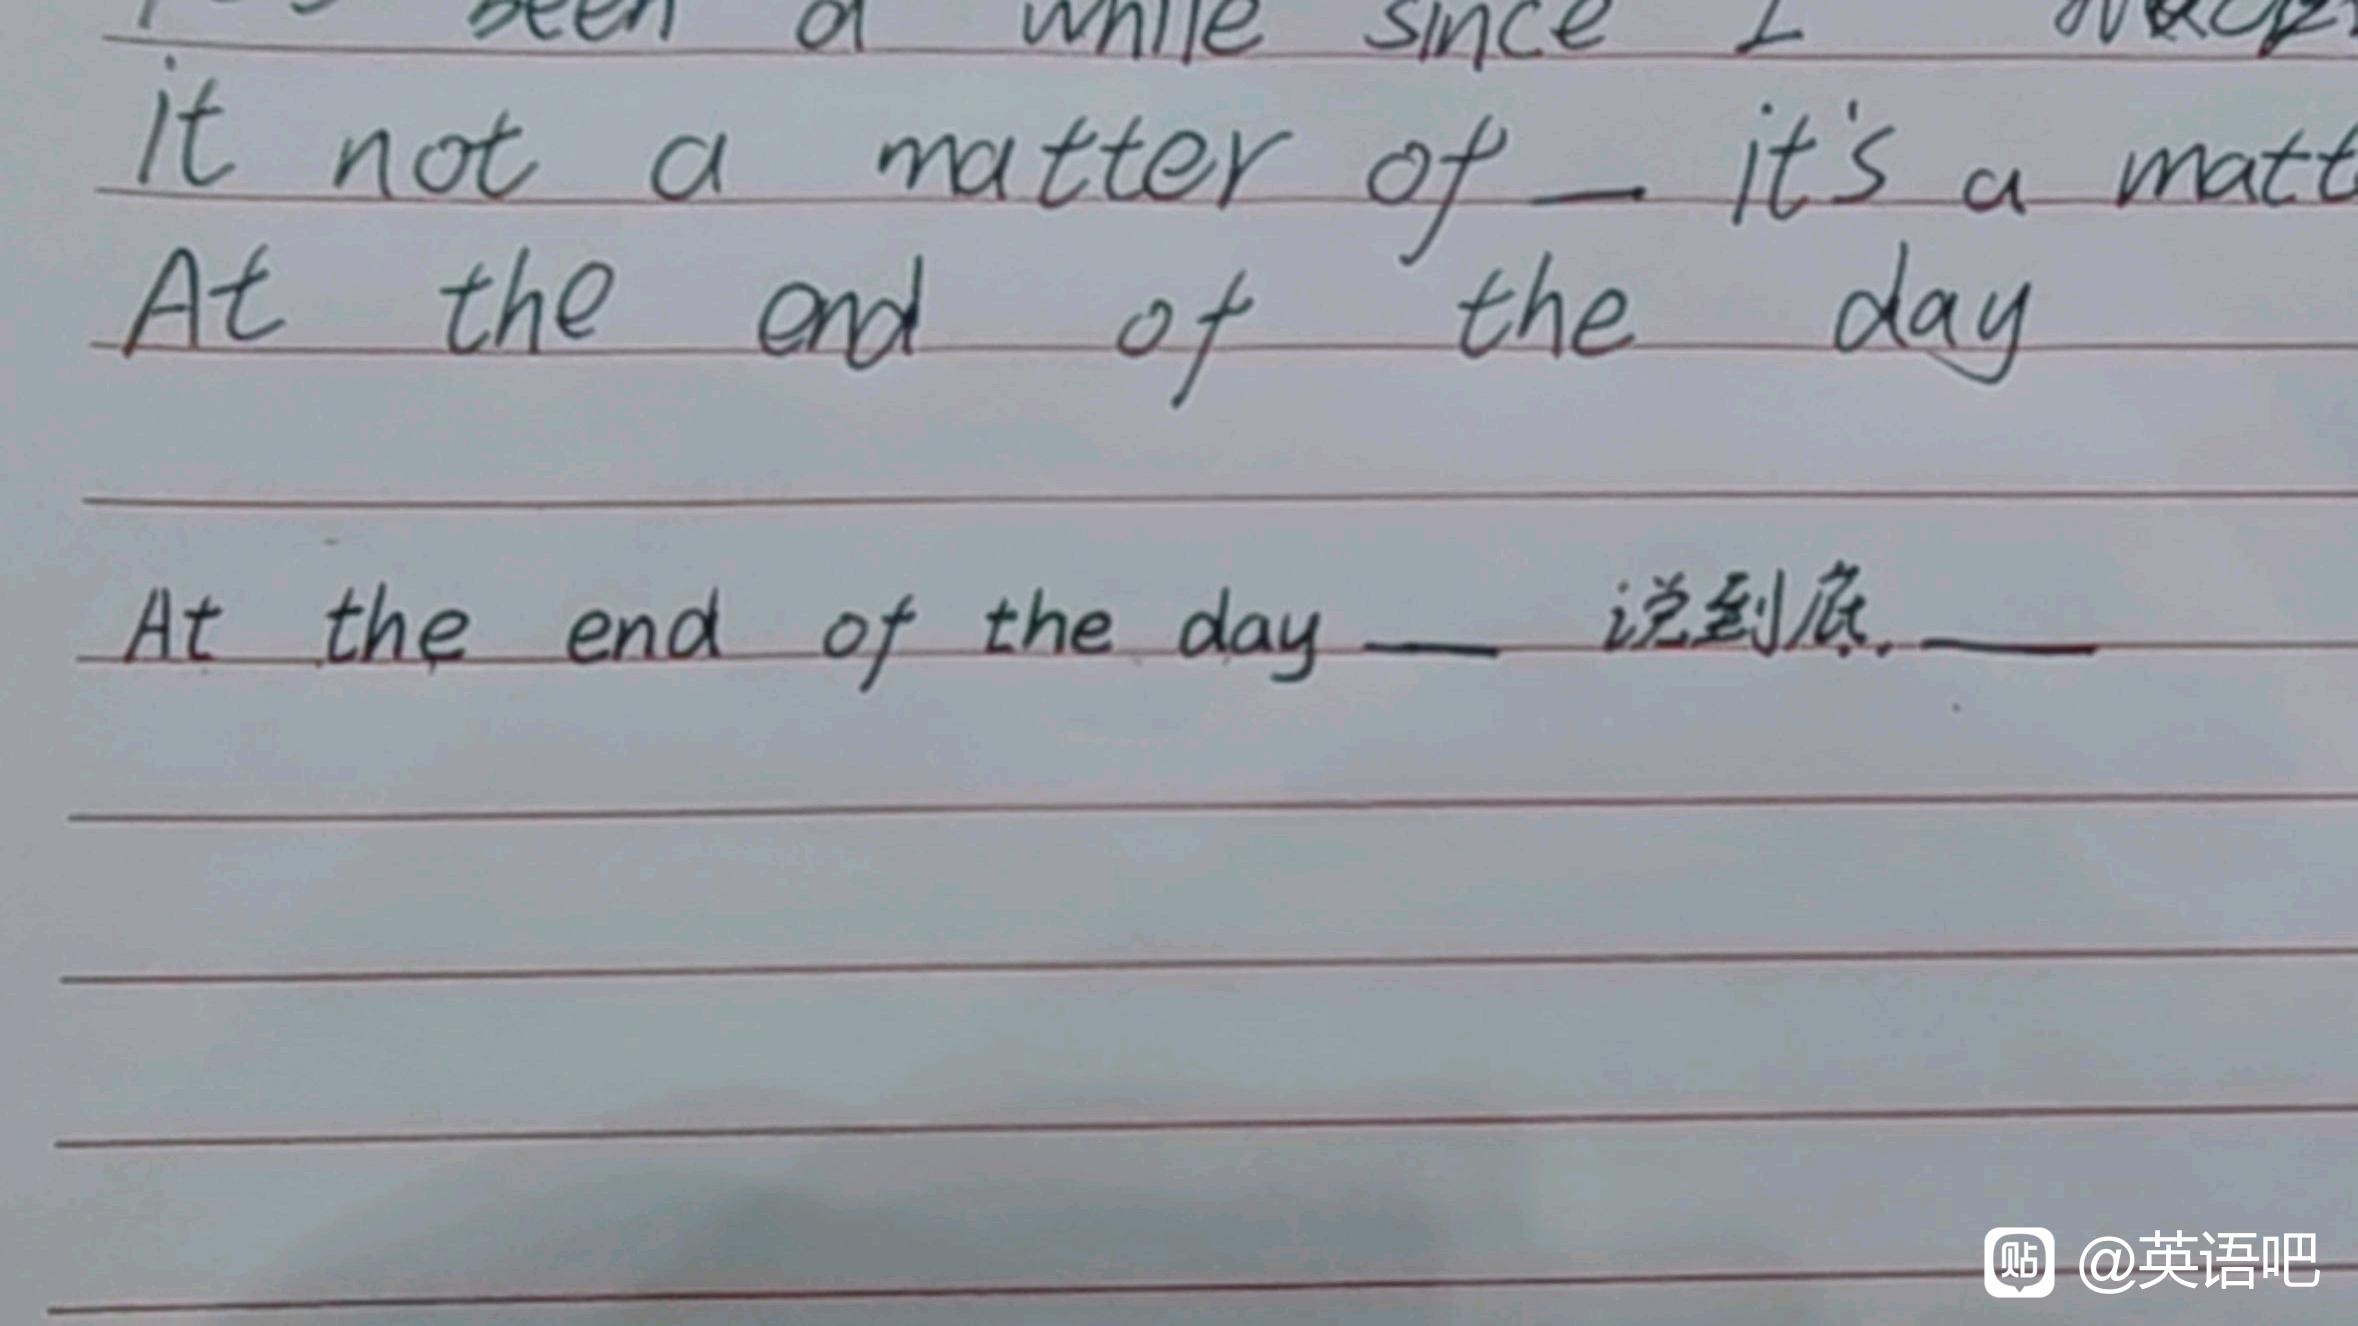 been a while since I
it not a matter of — it's a matt
At the end of the day
At the end of the day — 说到底. —
贴 @英语吧